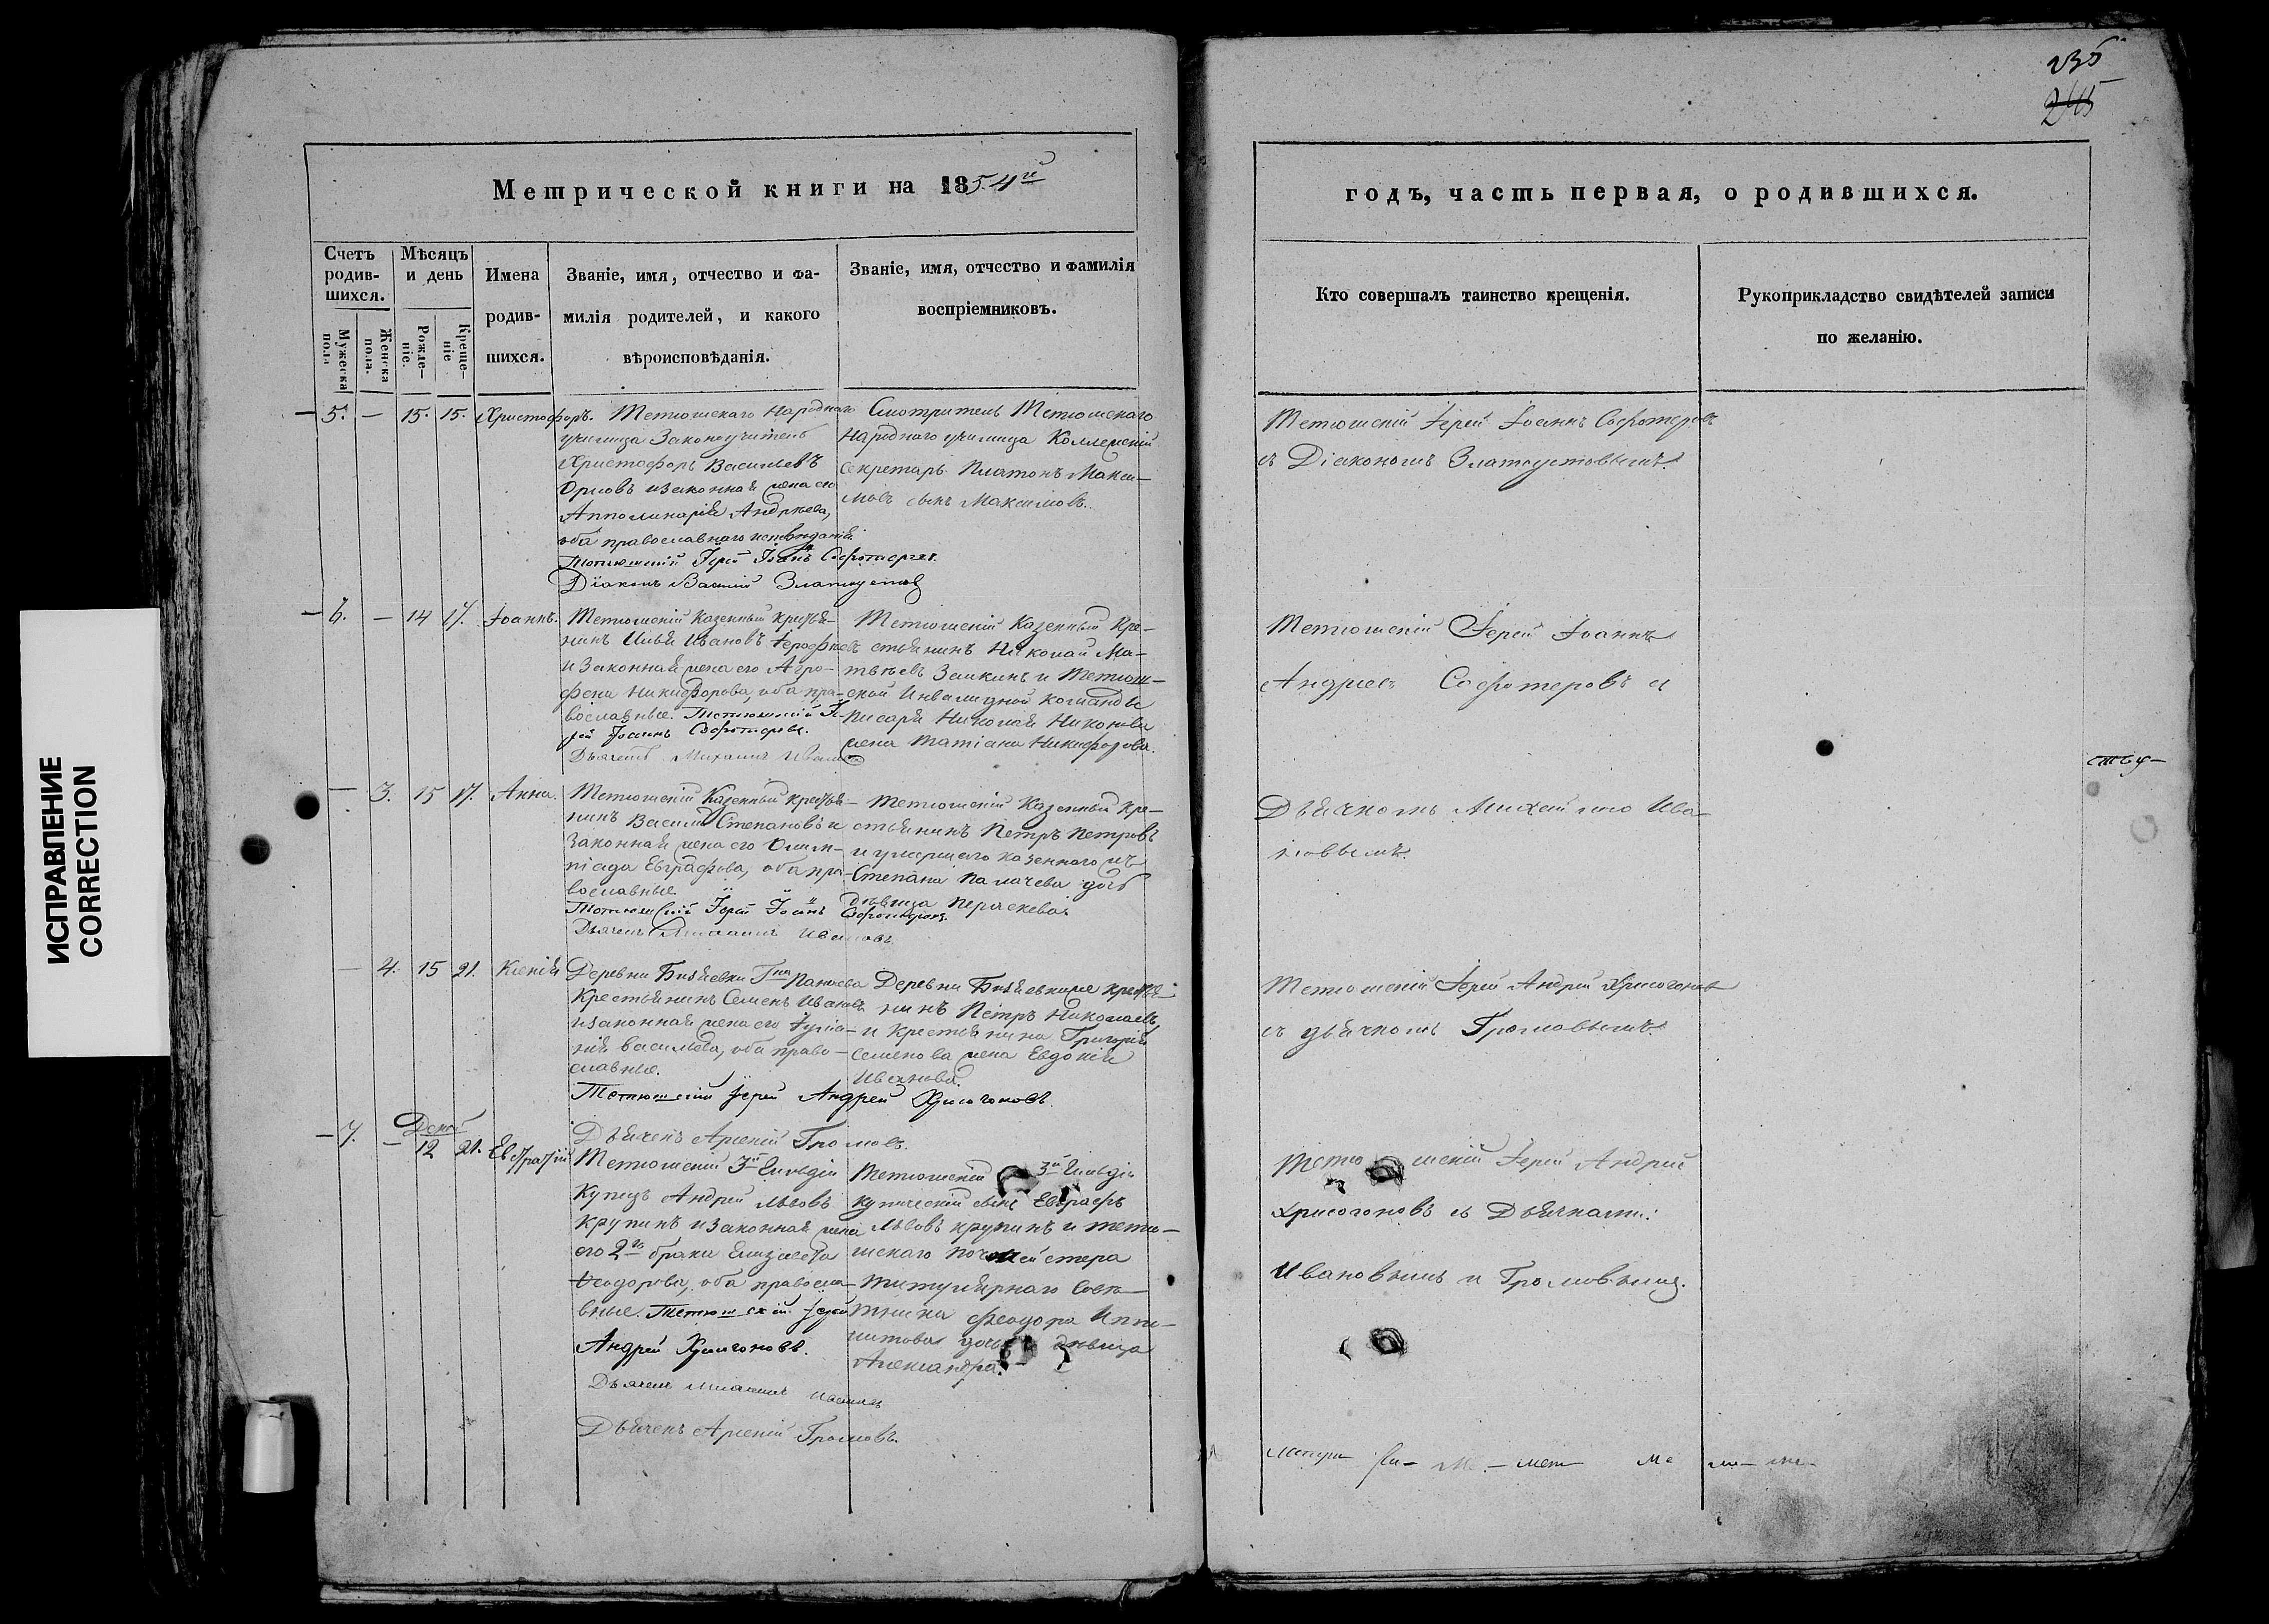 235
245
ИСПРАВЛЕНИЕ
CORRECTION
Метрической книги на 1854й
годъ, часть первая, о родившихся.
Счетъ родив-шихся.
Мужеска пола
Женска пола.
Мѣсяцъ и день
Рожде-ніе.
Креще-ніе
Имена родив-шихся.
Званіе, имя, отчество и фа-
милія родителей, и какого
вѣроисповѣданія.
Званіе, имя, отчество и фамилія
воспріемниковъ.
Кто совершалъ таинство крещенія.
Рукоприкладство свидѣтелей записи
по желанію.
5. — 15. 15. Христофоръ.
Тетюшскаго Народнаго
училища Законоучитель
Христофоръ Васильевъ
Орловъ и законная жена его
Апполинарія Андреева,
оба православнаго исповѣданія
Тетюшскій Іерей Іоаннъ Софотеровъ.
Діаконъ Василій Златоустовъ
Смотритель Тетюшскаго
Народнаго училища Коллежскій
Секретарь Платонъ Макси-
мовъ сынъ Максимовъ.
Тетюшскій Іерей Іоаннъ Софотеровъ
съ Діакономъ Златоустовымъ
6. — 14 17. Іоаннъ.
Тетюшскій Казенный крестья-
нинъ Илья Ивановъ Іерофѣевъ
и законная жена его Агро-
фена Никифорова, оба пра-
вославные. Тетюшскій Іе-
рей Іоаннъ Софотеровъ.
Дьячекъ Михаилъ Ивановъ
Тетюшскій Казенный Кре-
стьянинъ Николай Ма-
твѣевъ Заикинъ и Тетюш-
ской Инвалидной команды
писаря Николая Никонова
жена Татіана Никифорова.
Тетюшскій Іерей Іоаннъ
Андреевъ Софотеровъ съ
— 3. 15 17. Анна.
Тетюшскій Казенный крестья-
нинъ Василій Степановъ и
законная жена его Олим-
піада Евграфова, оба пра-
вославные.
Тетюшскій Іерей Іоаннъ Софотеровъ.
Дьячекъ Михаилъ Ивановъ.
Тетюшскій Казенный Кре-
стьянинъ Петръ Петровъ
и умершаго казеннаго
Степана Палачева дочь
дѣвица Перасковья
Дьячкомъ Михайломъ Ива-
новымъ.
— 4. 15 21. Ксенія
Деревни Бизяевки Гна Панаева
Крестьянинъ Семенъ Ивановъ
и законная жена его Іуліа-
нія Васильева, оба право-
славные.
Тетюшскій Іерей Андрей Хрисогоновъ.
Дьячекъ Арсеній Громовъ.
Деревни Бизяевки же крестья-
нинъ Петръ Николаевъ
и крестьянина Григорія
Семенова жена Евдокія
Иванова.
Тетюшскій Іерей Андрей Хрисогоновъ
съ дьячкомъ Громовымъ.
7. — 12 21. Евстратій
Тетюшскій 3й Гильдіи
Купецъ Андрей Львовъ
Крупинъ и законная жена
его 2го брака Елизавета
Ѳеодорова, оба правосла-
вные. Тетюшскій Іерей
Андрей Хрисогоновъ.
Дьячекъ Михаилъ Ивановъ
Дьячекъ Арсеній Громовъ.
Тетюшскій 3й Гильдіи
купеческій сынъ Евграфъ
Львовъ Крупинъ и Тетю-
шскаго почмейстера
Титулярнаго Совѣ-
тника Феодора Иппо-
литова дочь дѣвица
Александра.
Тетюшскій Іерей Андрей
Хрисогоновъ съ Дьячками:
Ивановымъ и Громовымъ.